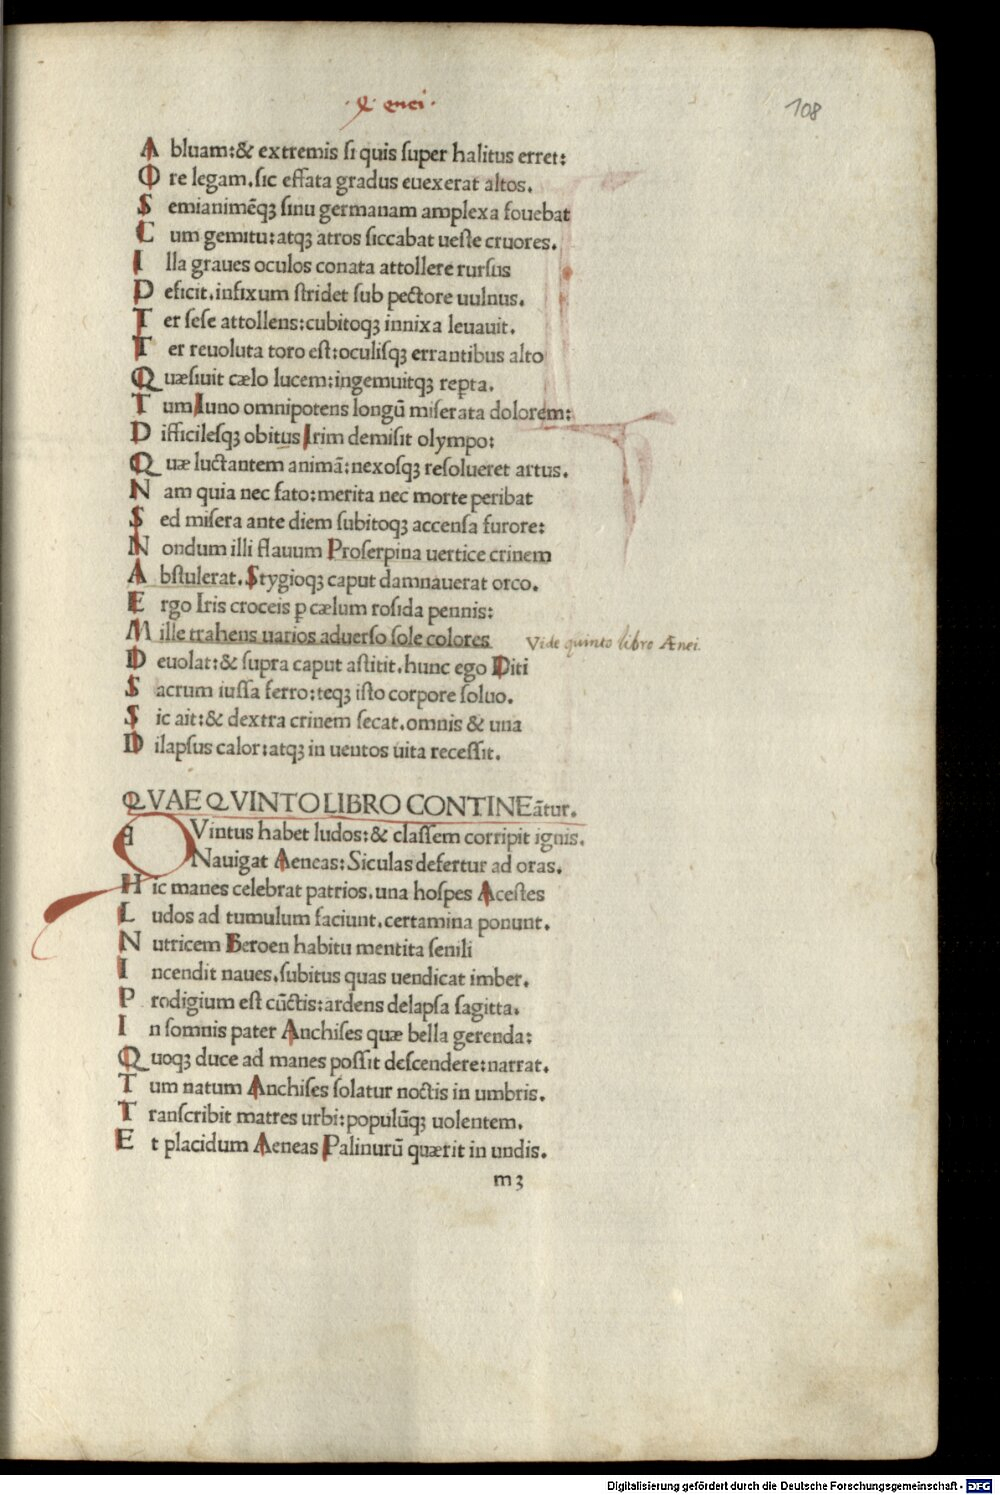 enei.
108
Abluam:& extremis si quis super halitus erret:
Ore legam. sic effata gradus euexerat altos.
Semianimēqꝫ sinu germanam amplexa fouebat
Cum gemitu: atqꝫ atros siccabat ueste cruores.
Illa graues oculos conata attollere rursus
Deficit. infixum stridet sub pectore uulnus.
Ter sese attollens: cubitoqꝫ innixa leuauit.
Ter reuoluta toro est: oculisqꝫ errantibus alto
Quæsiuit cælo lucem: ingemuitqꝫ reꝑta.
Tum Iuno omnipotens longū miserata dolorem:
Difficilesqꝫ obitus Irim demisit olympo:
Quæ luctantem animā: nexosqꝫ resolueret artus.
Nam quia nec fato: merita nec morte peribat
Sed misera ante diem subitoqꝫ accensa furore:
Nondum illi flauum Proserpina uertice crinem
Abstulerat. Stygioqꝫ caput damnauerat orco.
Ergo Iris croceis ꝑ cælum rosida pennis:
Mille trahens uarios aduerso sole colores
Vide quinto libro Ænei.
Deuolat: & supra caput astitit. hunc ego Diti
Sacrum iussa ferro: teqꝫ isto corpore soluo.
Sic ait: & dextra crinem secat. omnis & una
Dilapsus calor: atqꝫ in uentos uita recessit.
QVAE QVINTO LIBRO CONTINEātur.
q
QVintus habet ludos: & classem corripit ignis.
Nauigat Aeneas: Siculas defertur ad oras.
Hic manes celebrat patrios. una hospes Acestes
Ludos ad tumulum faciunt. certamina ponunt.
Nutricem Beroen habitu mentita senili
Incendit naues. subitus quas uendicat imber.
Prodigium est cūctis: ardens delapsa sagitta.
In somnis pater Anchises quæ bella gerenda:
Quoqꝫ duce ad manes possit descendere: narrat.
Tum natum Anchises solatur noctis in umbris.
Transcribit matres urbi: populūqꝫ uolentem.
Et placidum Aeneas Palinurū quærit in undis.
m 3
Digitalisierung gefördert durch die Deutsche Forschungsgemeinschaft - DFG